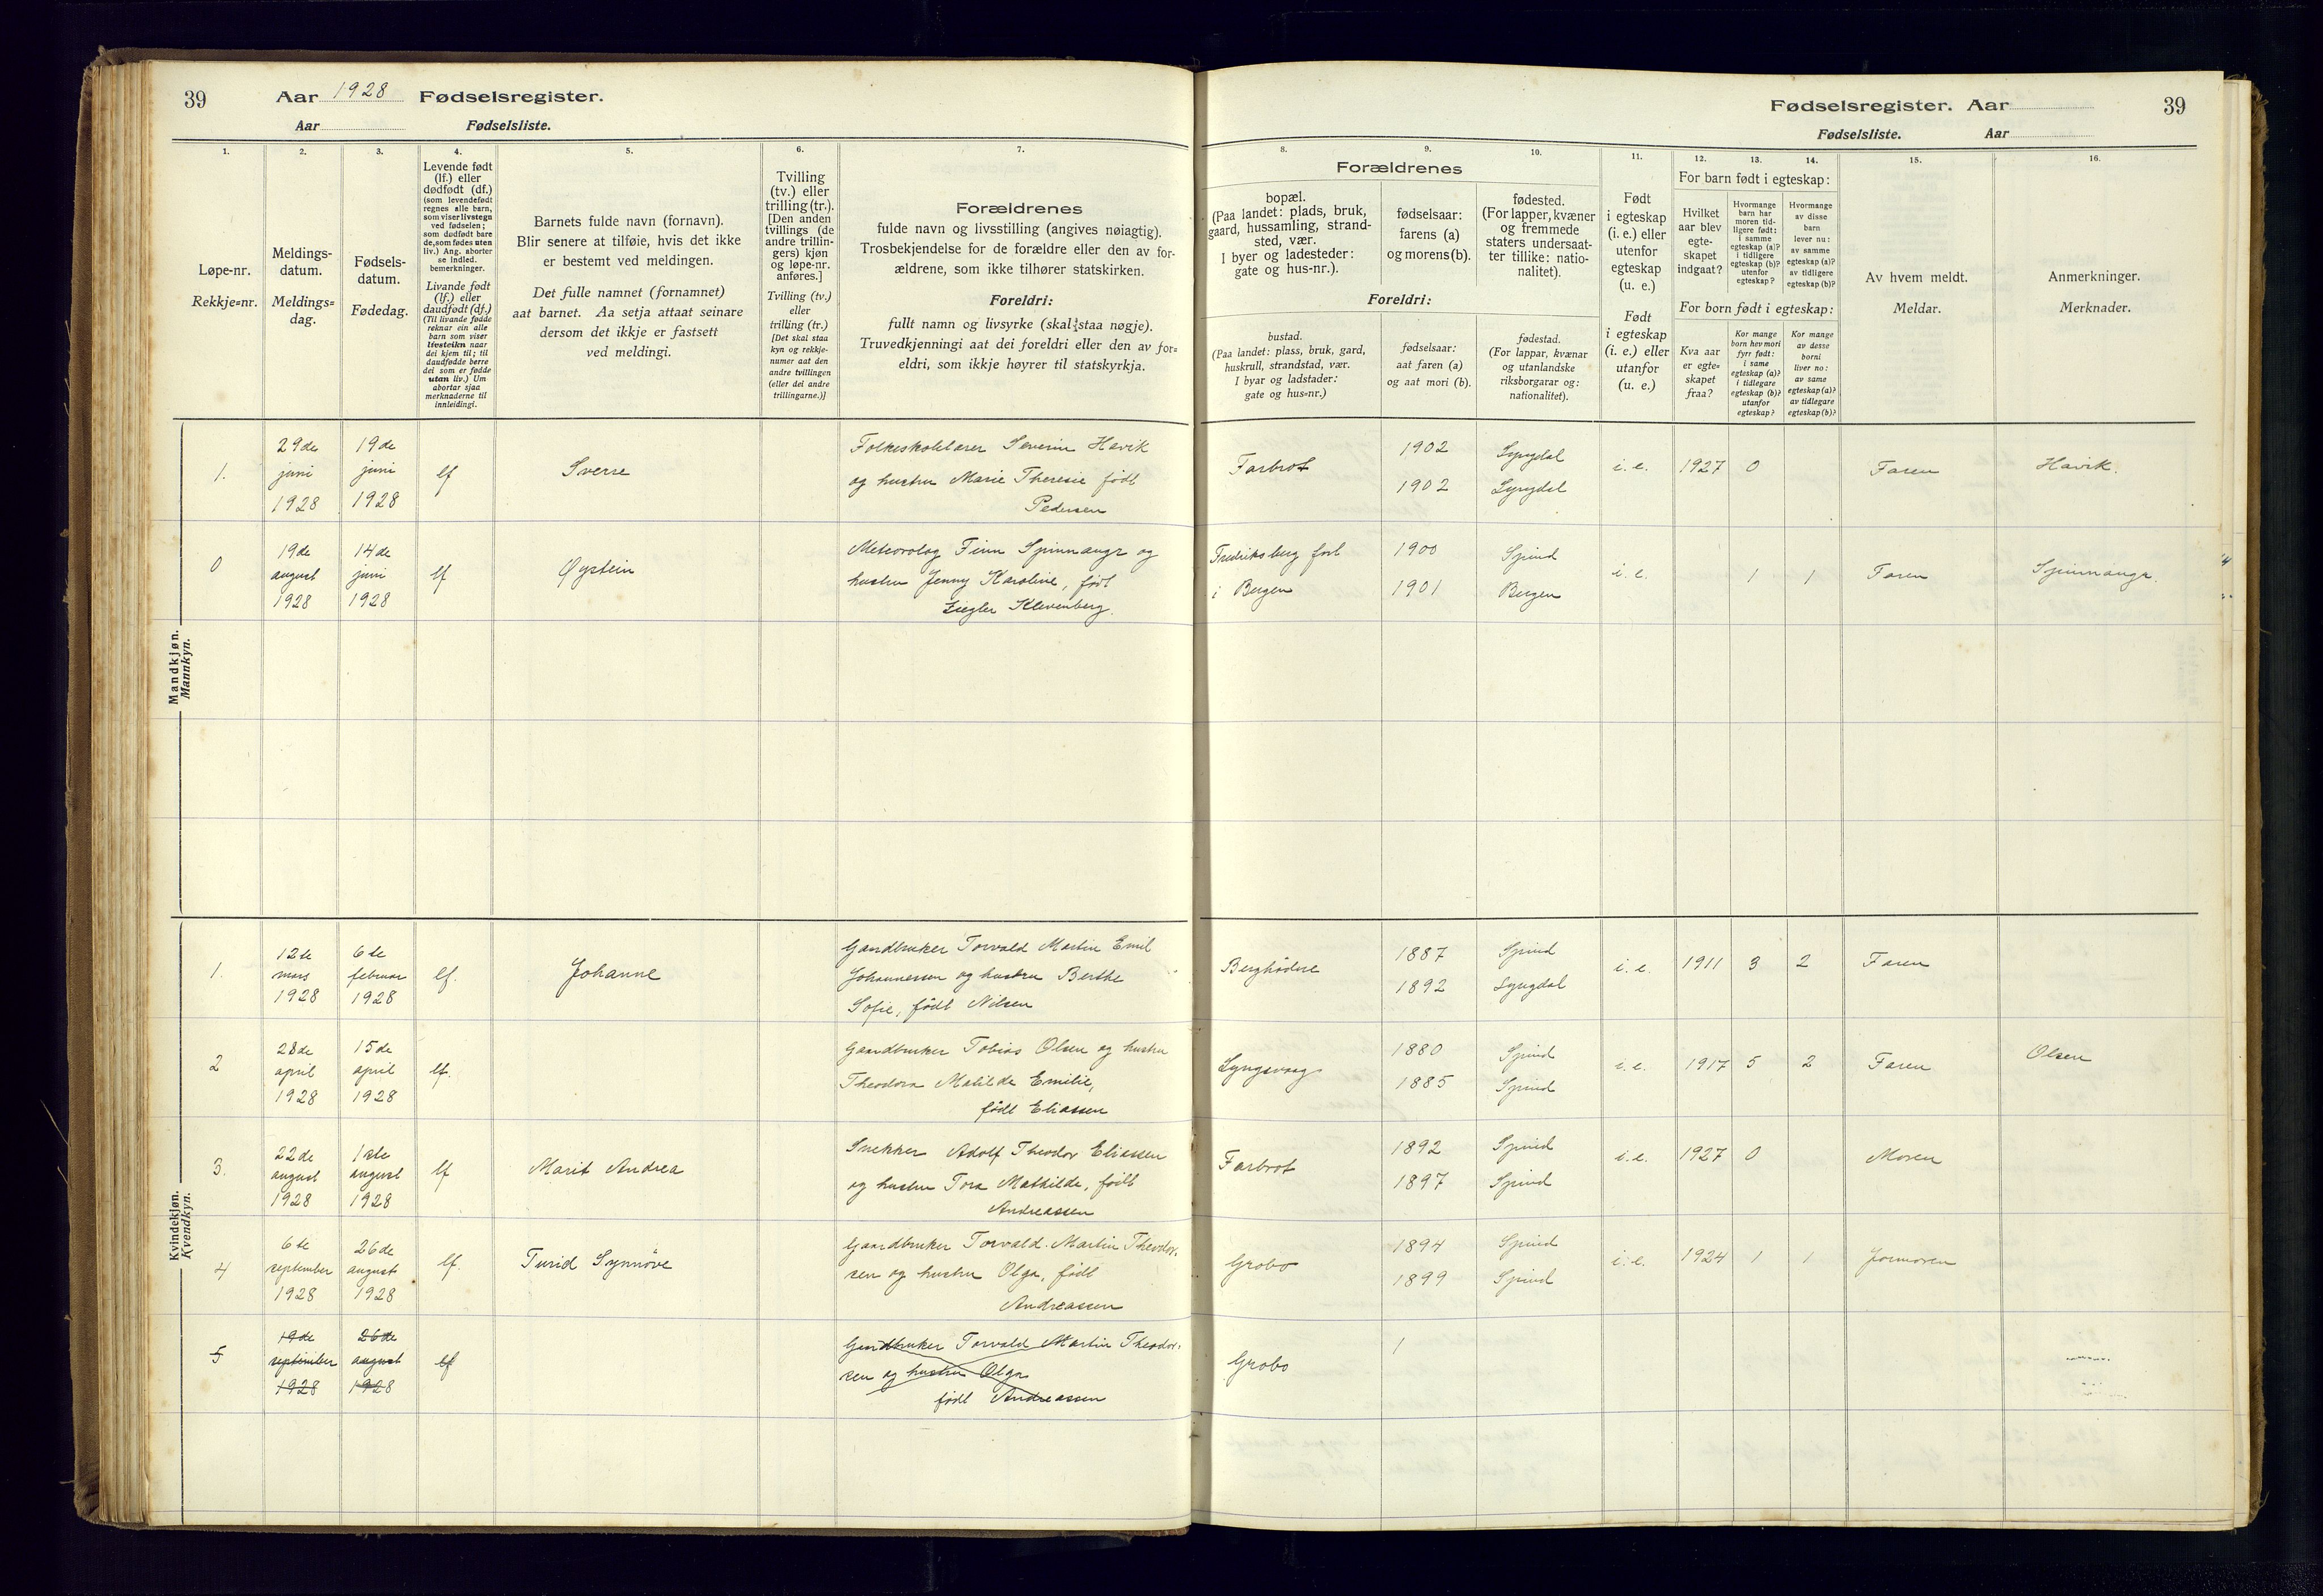 39
Aar 1928 Fødselsregister.
Aar Fødselsliste.
1.
2.
3.
4.
5.
6.
7.
Løpe-nr.
Rekkje=nr.
Meldings-
datum.
Meldings=
dag.
Fødsels-
datum.
Fødedag.
Levende født
(lf.) eller
dødfødt (df.)
(som levendefødt
regnes alle barn,
som viser livstegn
ved fødselen;
som dødfødt bare
de, som fødes uten
liv.) Ang. aborter
se indled.
bemerkninger.
Livande født
(lf.) eller
daudfødt (df.)
(Til livande fødde
reknar ein alle
barn som viser
livsteikn naar
dei kjem til; til
daudfødde berre
dei som er fødde
utan liv.) Um
abortar sjaa
merknaderne til
innleidingi.
Barnets fulde navn (fornavn).
Blir senere at tilføie, hvis det ikke
er bestemt ved meldingen.
Det fulle namnet (fornamnet)
aat barnet. Aa setja attaat seinare
dersom det ikkje er fastsett
ved meldingi.
Tvilling
(tv.) eller
trilling (tr.).
[Den anden
tvillings (de
andre trillin-
gers) kjøn
og løpe-nr.
anføres.]
Tvilling (tv.)
eller
trilling (tr.)
[Det skal staa
kyn og rekkje-
numer aat den
andre tvillingen
(eller dei andre
trillingarne.)]
Forældrenes
fulde navn og livsstilling (angives nøiagtig).
Trosbekjendelse for de forældre eller den av for-
ældrene, som ikke tilhører statskirken.
Foreldri:
fullt namn og livsyrke (skal staa nøgje).
Truvedkjenningi aat dei foreldri eller den av for=
eldri, som ikkje høyrer til statskyrkja.
Mandkjøn.
Mannkyn.
1.
29de
juni
1928
19de
juni
1928
lf
Sverre
Folkeskolelærer Severin Havik
og hustru Marie Theresie født
Pedersen
0
19de
august
1928
14de
juni
1928
lf
Øystein
Meteorolog Finn Spinnangr og
hustru Jenny Karoline, født
Ziegler Klevenberg.
Kvindekjøn.
Kvendkyn.
1.
12te
mars
1928
6te
februar
1928
lf.
Johanne
Gaardbruker Torvald Martin Emil
Johannessen og hustru Berthe
Sofie, født Nilsen
2
28de
april
1928
15de
april
1928
lf.
Gaardbruker Tobias Olsen og hustru
Theodora Matilde Emilie,
født Eliassen
3.
22de
august
1928
1ste
august
1928
lf
Marit Andrea
Snekker Adolf Theodor Eliassen
og hustru Tora Mathilde, født
Andreassen
4
6te
september
1928
26de
august
1928
lf.
Turid Synnöve
Gaardbruker Torvald Martin Theodor-
sen og hustru Olga, født
Andreassen
5
19de
september
1928
26de
august
1928
lf
Gardbruker Torvald Martin Theodor-
sen og hustru Olga
født Andreassen
Fødselsregister. Aar 39
Fødselsliste. Aar
8.
9.
10.
11.
12.
13.
14.
15.
16.
Forældrenes
bopæl.
(Paa landet: plads, bruk,
gaard, hussamling, strand-
sted, vær.
I byer og ladesteder:
gate og hus-nr.).
fødselsaar:
farens (a)
og morens (b).
fødested.
(For lapper, kvæner
og fremmede
staters undersaat-
ter tillike: natio-
nalitet).
Foreldri:
bustad.
(Paa landet: plass, bruk, gard,
huskrull, strandstad, vær.
I byar og ladstader:
gate og hus=nr.)
fødselsaar:
aat faren (a)
og aat mori (b).
fødestad.
(For lappar, kvænar
og utanlandske
riksborgarar og:
nationalitet).
Født
i egteskap
(i. e.) eller
utenfor
egteskap
(u. e.)
Født
i egteskap
(i. e.) eller
utanfor
(u. e.)
For barn født i egteskap:
Hvilket
aar blev
egte-
skapet
indgaat?
Hvormange
barn har
moren tid-
ligere født:
i samme
egteskap (a)?
i tidligere
egteskap (b)?
utenfor
egteskap?
Hvormange
av disse
barn
lever nu:
av samme
egteskap (a)?
av tidligere
egteskap (b)?
For born født i egteskap:
Kva aar
er egte=
skapet
fraa?
Kor mange
born hev mori
fyrr født:
i same
egteskap (a)?
i tidlegare
egteskap (b)?
utanfor
egteskap?
Kor mange
av desse
borni
liver no:
av same
egteskap (a)?
av tidlegare
egteskap (b)?
Av hvem meldt.
Meldar.
Anmerkninger.
Merknader.
Farbrot
1902
1902
Lyngdal
Lyngdal
i. e.
1927
0
Faren
Havik.
Fredriksberg fort
i Bergen
1900
1901
Spind
Bergen
i. e.
1
1
Faren
Spinnangr.
Berghödne
1887
1892
Spind
Lyngdal
i. e.
1911
3
2
Faren
Lyngsvaag
1880
1885
Spind
Spind
i. e.
1917
5
2
Faren
Olsen
Farbrot
1892
1897
Spind
Spind
i. e.
1927
0
Moren
Grobo
1894
1899
Spind
Spind
i. e.
1924
1
1
Jormoren
Grobo
1